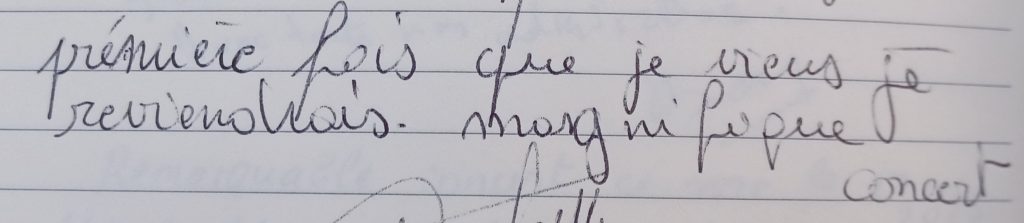 prémière fois que je viens je
reviendrais. magnifique
concert